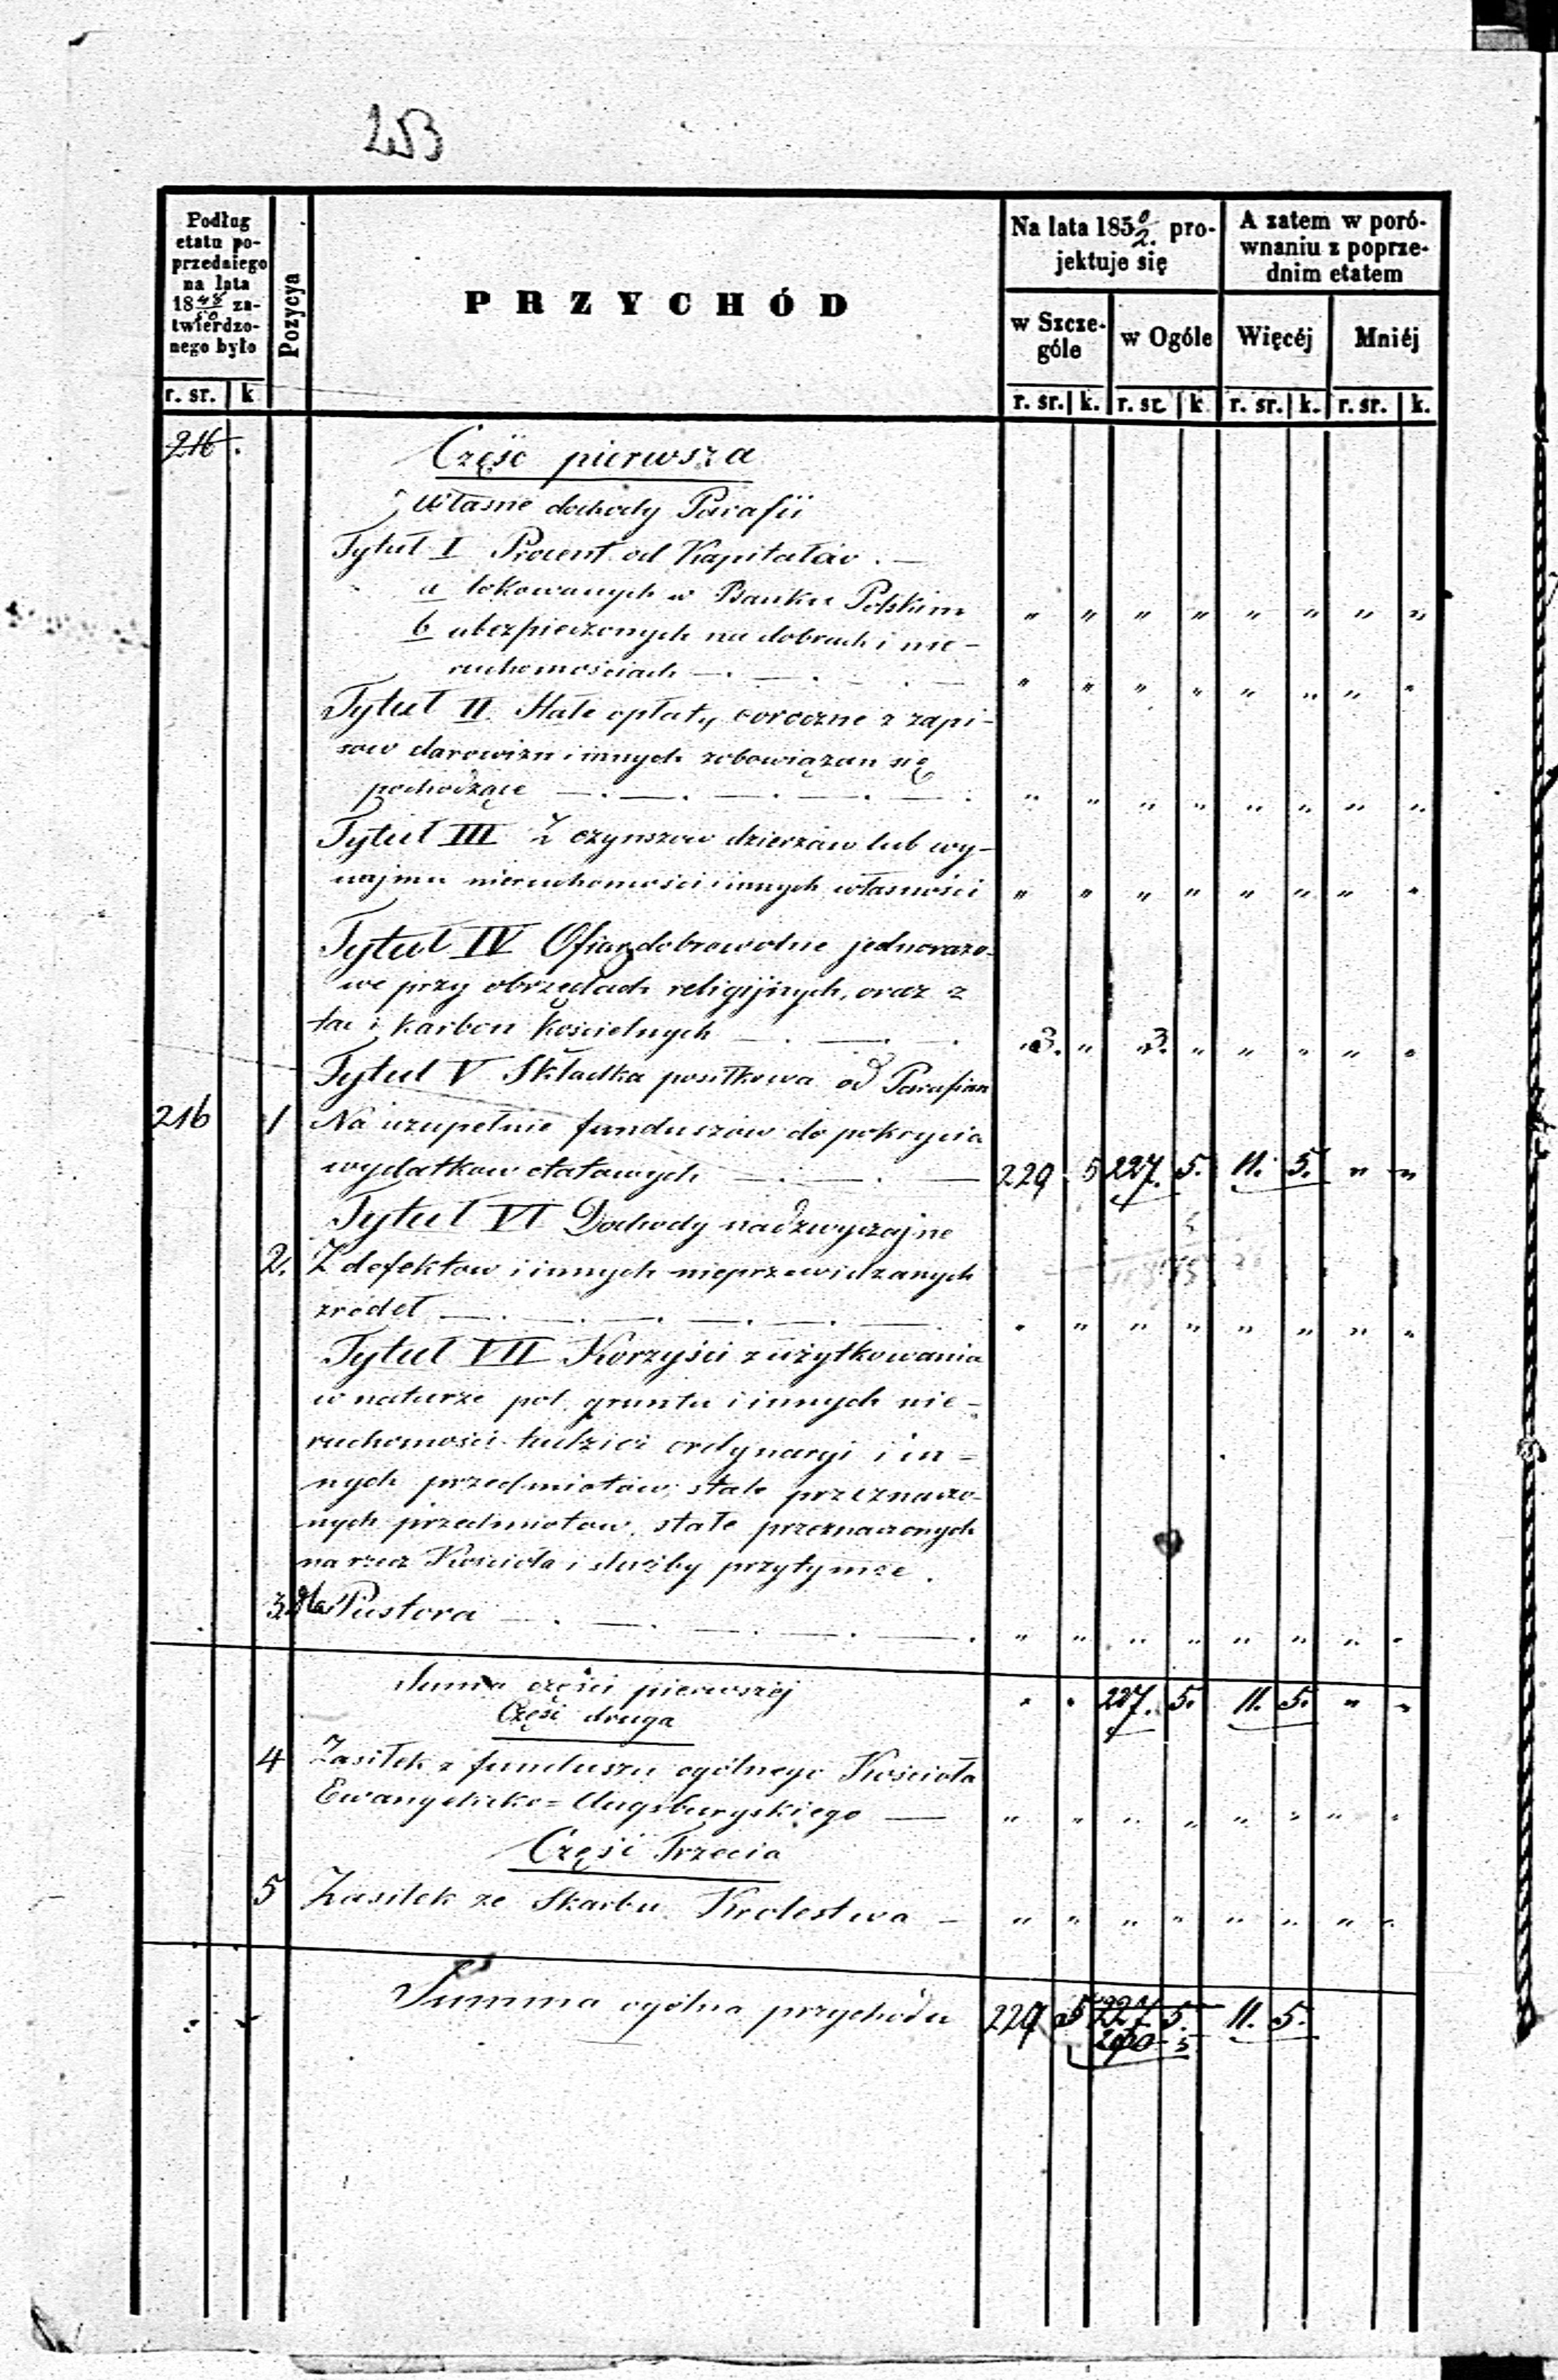 253
Podług etatu poprzedniego na lata 18 48/50 zatwierdzonego było
Pozycya
PRZYCHÓD
Na lata 185 0/2. projektuje się
A zatem w porównaniu z poprzednim etatem
w Szczególe
w Ogóle
Więcéj
Mniéj
r. sr. k r. sr. k. r. sr. k r. sr. k. r. sr. k.
216 .
Część pierwsza
Własne dochody Parafii
Tytuł I Procent od Kapitałów . —
a lokowanych w Banku Polskim " " " " " " " "
b ubezpieczonych na dobrach i nie-
ruchomościach — . — . — . — " " " " " " " "
Tytuł II Stałe opłaty coroczne z zapi-
sow darowizn i innych zobowiązan się
pochodzące — . — . — . — . — . " " " " " " " "
Tytuł III Z czynszow dzierzaw lub wy-
najmu nieruchomości i innych własności " " " " " " " "
Tytuł IV Ofiary dobrowolne jednorazo-
we przy obrzędach religijnych, oraz z
tac i karbon kościelnych — . — . 3. " 3. " " " " "
Tytuł V Składka posiłkowa od Parafian
216 1 Na uzupełnie funduszow do pokrycia
wydatkow etatowych — . — . — 229 5 227. 5. 11. 5. " "
Tytuł VI Dochody nadzwyczajne
2. Z defektow i innych nieprzewidzanych
zrodeł — . — . — . — . — " " " " " " " "
Tytuł VII Korzyści z użytkowania
w naturze pol, gruntu i innych nie-
ruchomości tudzież ordynaryi i in=
nych przedmiotów, stale przeznaczo-
nych przedmiotow, stałe przeznaczonych
na rzecz Kościoła i służby przytymże .
3. dla Pastora — . — . — . — . " " " " " " " "
Summa części pierwszej " " 227. 5. 11. 5. " "
Część druga
4 Zasiłek z funduszu ogólnego Kościoła
Ewangelicko=Augsburgskiego — " " " " " " " "
Część Trzecia
5 Zasiłek ze Skarbu Krolestwa — " " " " " " " "
Summa ogólna przychodu 229 5 227. 5. 11. 5.